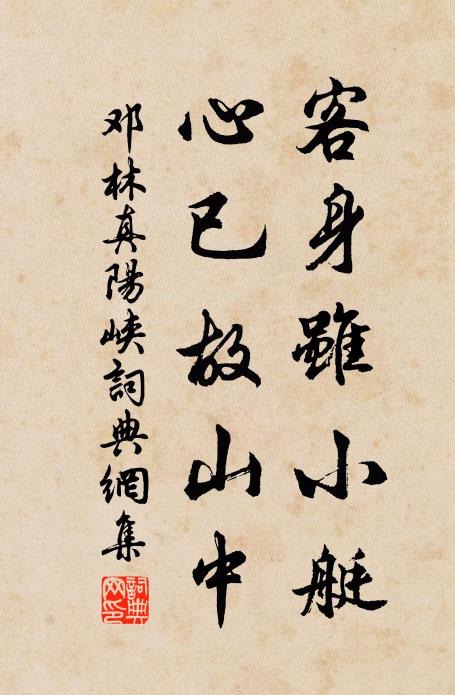 客身雖小艇
心已故山中
邓林真陽峽詞典網集
詞典
网印